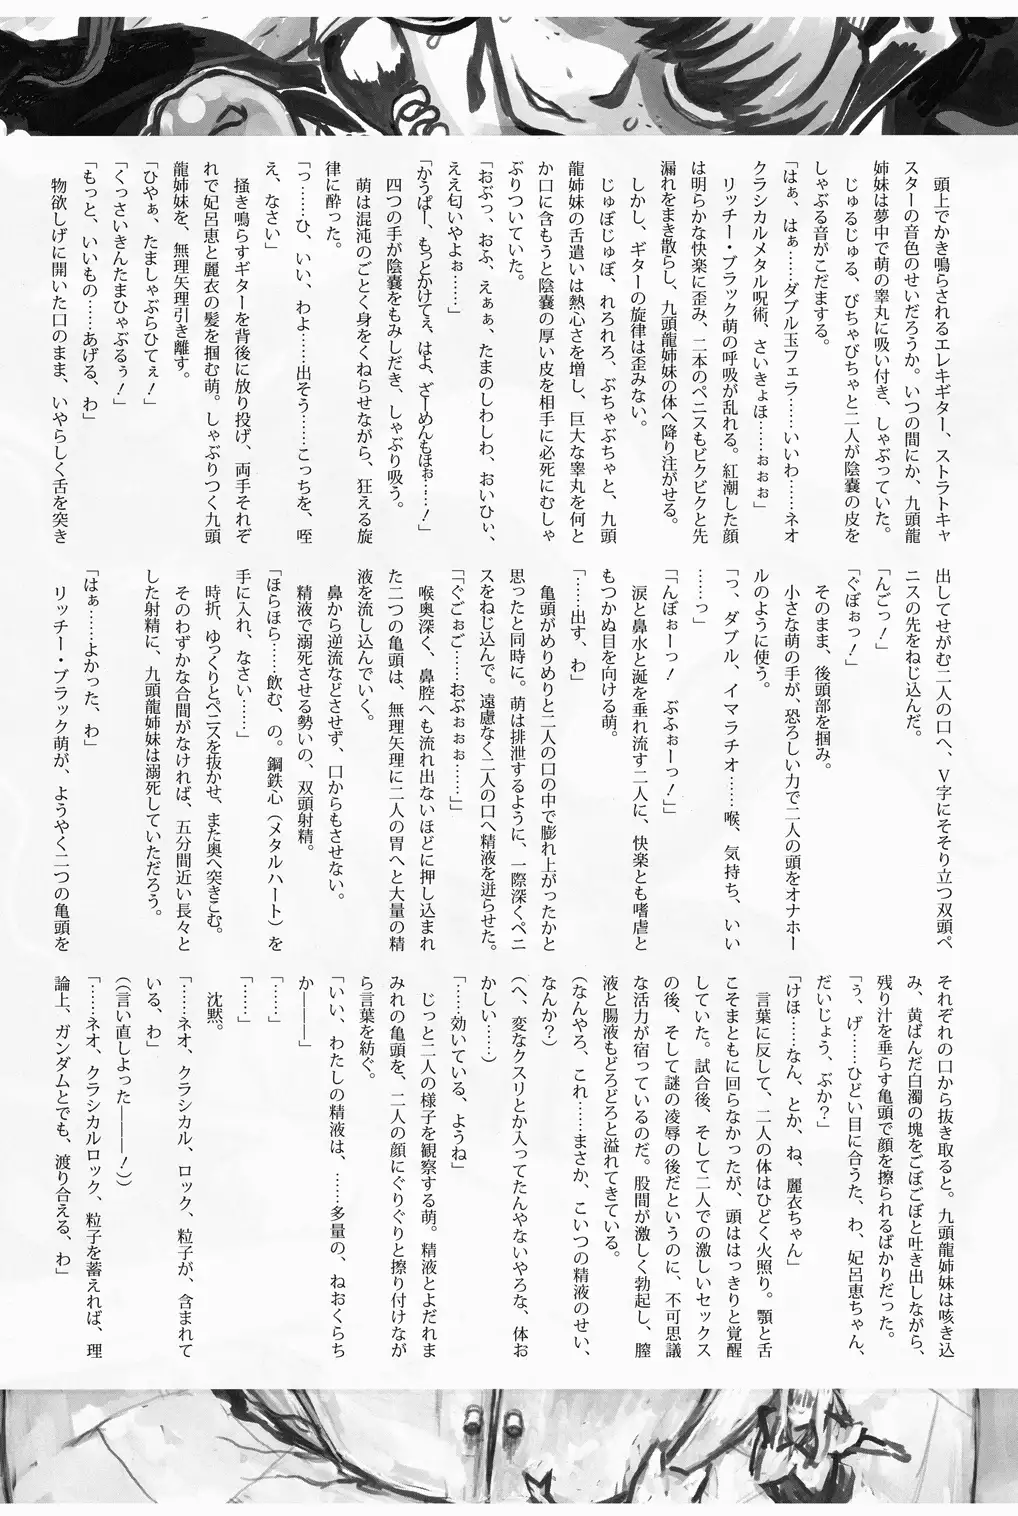 頭上でかき鳴らされるエレキギター、ストラトキャ
スターの音色のせいだろうか。いつの間にか、九頭龍
姉妹は夢中で萌の睾丸に吸い付き、しゃぶっていた。
じゅるじゅる、びちゃびちゃと二人が陰嚢の皮を
しゃぶる音がこだまする。
「はぁ、はぁ……ダブル玉フェラ……いいわ……ネオ
クラシカルメタル呪術、さいきょほ……ぉぉぉ」
リッチー・ブラック萌の呼吸が乱れる。紅潮した顔
は明らかな快楽に歪み、二本のペニスもビクビクと先
漏れをまき散らし、九頭龍姉妹の体へ降り注がせる。
しかし、ギターの旋律は歪みない。
じゅぽじゅぽ、れろれろ、ぶちゃぶちゃと、九頭
龍姉妹の舌遣いは熱心さを増し、巨大な睾丸を何と
か口に含もうと陰嚢の厚い皮を相手に必死にむしゃ
ぶりついていた。
「おぶっ、おふ、えぁぁ、たまのしわしわ、おいひぃ、
ええ匂いやよぉ……」
「かうぱー、もっとかけてぇ、はよ、ざーめんもほぉ……！」
四つの手が陰嚢をもみしだき、しゃぶり吸う。
萌は混沌のごとく身をくねらせながら、狂える旋
律に酔った。
「っ……ひ、いい、わよ……出そう……こっちを、咥
え、なさい」
掻き鳴らすギターを背後に放り投げ、両手それぞ
れで妃呂恵と麗衣の髪を掴む萌。しゃぶりつく九頭
龍姉妹を、無理矢理引き離す。
「ひやぁ、たましゃぶらひてぇ！」
「くっさいきんたまひゃぶるぅ！」
「もっと、いいもの……あげる、わ」
物欲しげに開いた口のまま、いやらしく舌を突き
出してせがむ二人の口へ、Ｖ字にそそり立つ双頭ペ
ニスの先をねじ込んだ。
「んごっ！」
「ぐぼぉっ！」
そのまま、後頭部を掴み。
小さな萌の手が、恐ろしい力で二人の頭をオナホー
ルのように使う。
「っ、ダブル、イマラチオ……喉、気持ち、いい
……っ」
「「んぼぉーっ！　ぶふぉーっ！」」
涙と鼻水と涎を垂れ流す二人に、快楽とも嗜虐と
もつかぬ目を向ける萌。
「……出す、わ」
亀頭がめりめりと二人の口の中で膨れ上がったかと
思ったと同時に。萌は排泄するように、一際深くペニ
スをねじ込んで。遠慮なく二人の口へ精液を迸らせた。
「「ぐごぉご……おぶぉぉぉ……」」
喉奥深く、鼻腔へも流れ出ないほどに押し込まれ
た二つの亀頭は、無理矢理に二人の胃へと大量の精
液を流し込んでいく。
鼻から逆流などさせず、口からもさせない。
精液で溺死させる勢いの、双頭射精。
「ほらほら……飲む、の。鋼鉄心（メタルハート）を
手に入れ、なさい……」
時折、ゆっくりとペニスを抜かせ、また奥へ突きこむ。
そのわずかな合間がなければ、五分間近い長々と
した射精に、九頭龍姉妹は溺死していただろう。
「はぁ……よかった、わ」
リッチー・ブラック萌が、ようやく二つの亀頭を
それぞれの口から抜き取ると。九頭龍姉妹は咳き込
み、黄ばんだ白濁の塊をごぼごぼと吐き出しながら、
残り汁を垂らす亀頭で顔を擦られるばかりだった。
「ぅ、げ……ひどい目に合うた、わ、妃呂恵ちゃん、
だいじょう、ぶか？」
「けほ……なん、とか、ね、麗衣ちゃん」
言葉に反して、二人の体はひどく火照り。顎と舌
こそまともに回らなかったが、頭ははっきりと覚醒
していた。試合後、そして二人での激しいセックス
の後、そして謎の凌辱の後だというのに、不可思議
な活力が宿っているのだ。股間が激しく勃起し、膣
液と腸液もどろどろと溢れてきている。
（なんやろ、これ……まさか、こいつの精液のせい、
なんか？）
（へ、変なクスリとか入ってたんやないやろな、体お
かしい……）
「……効いている、ようね」
じっと二人の様子を観察する萌。精液とよだれま
みれの亀頭を、二人の顔にぐりぐりと擦り付けなが
ら言葉を紡ぐ。
「いい、わたしの精液は、……多量の、ねおくらち
か———」
「……」
「……」
沈黙。
「……ネオ、クラシカル、ロック、粒子が、含まれて
いる、わ」
（（言い直しよった———！））
「……ネオ、クラシカルロック、粒子を蓄えれば、理
論上、ガンダムとでも、渡り合える、わ」